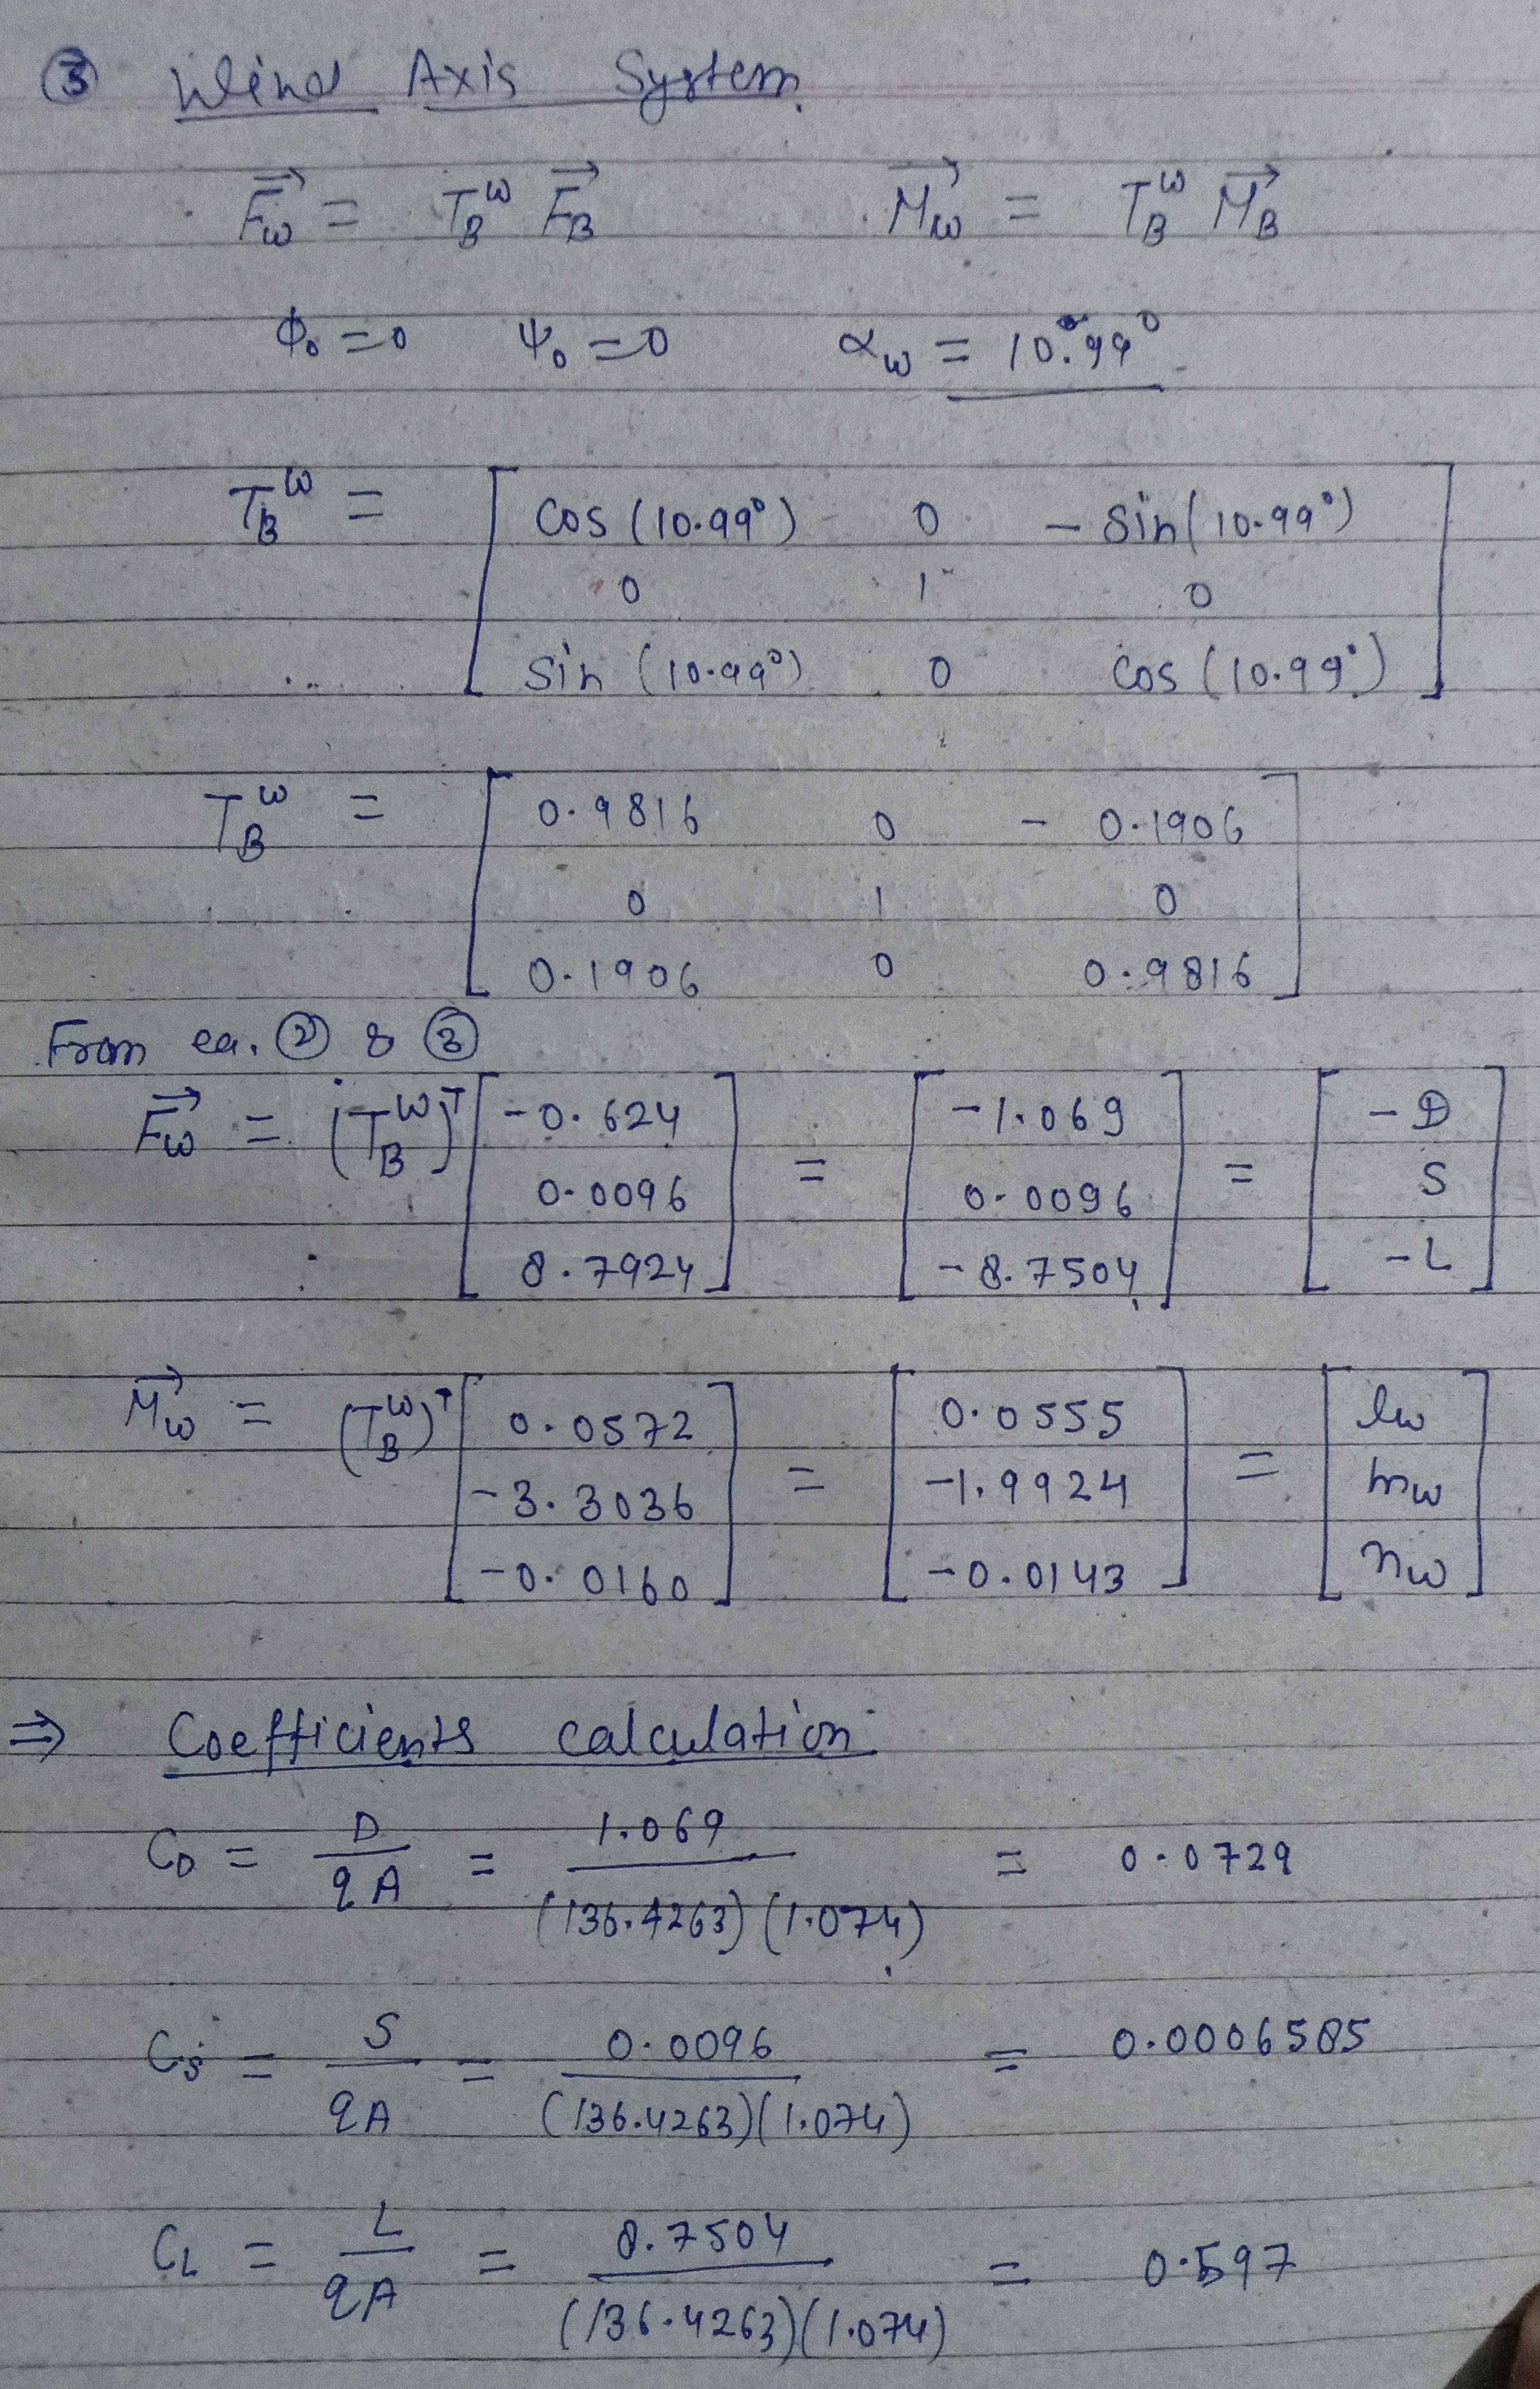 ③ Wind Axis System.
F⃗w = T_B^W F⃗_B    M⃗w = T_B^W M⃗_B
ϕ₀ = 0    ψ₀ = 0    αw = 10.99°
T_B^W = [ cos (10.99°)  0  - sin (10.99°)
0  1  0
sin (10.99°)  0  cos (10.99°) ]
T_B^W = [ 0.9816  0  - 0.1906
0  1  0
0.1906  0  0.9816 ]
From eq. ② & ③
F⃗w = (T_B^W)^T [ -0.624  0.0096  8.7924 ] = [ -1.069  0.0096  -8.7504 ] = [ -D  S  -L ]
M⃗w = (T_B^W)^T [ 0.0572  -3.3036  -0.0160 ] = [ 0.0555  -1.9924  -0.0143 ] = [ lw  mw  nw ]
⇒ Coefficients calculation
C_D = D / qA = 1.069 / (136.4263) (1.074) = 0.0729
C_S = S / qA = 0.0096 / (136.4263)(1.074) = 0.0006585
C_L = L / qA = 8.7504 / (136.4263)(1.074) = 0.597